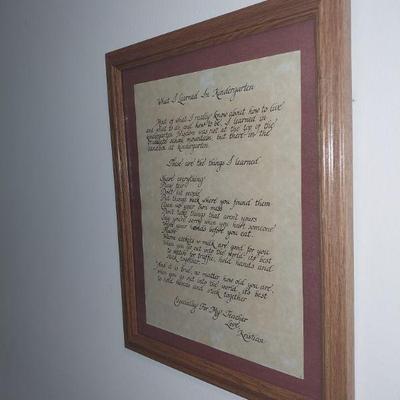 What I Learned In Kindergarten
Most of what I really know about how to live
and what to do, and how to be, I learned in
kindergarten. Wisdom was not at the top of the
graduate school mountain, but there in the
sandbox at kindergarten.
These are the things I learned
Share everything
Play fair
Don't hit people
Put things back where you found them
Clean up your own mess
Don't take things that aren't yours
Say you're sorry when you hurt someone
Wash your hands before you eat.
Flush
Warm cookies & milk are good for you
When you go out into the world, its best
to watch for traffic, hold hands and
stick together.
And it is true, no matter how old you are,
when you go out into the world, its best
to hold hands and stick together
Especially For My Teacher
Love,
Kristian